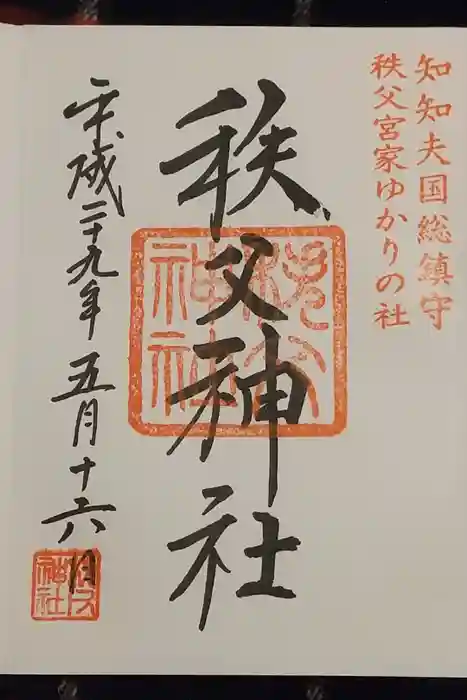 知知夫国総鎮守
秩父宮家ゆかりの社
秩父神社
秩父神社
平成二十九年五月十六日
秩父神社